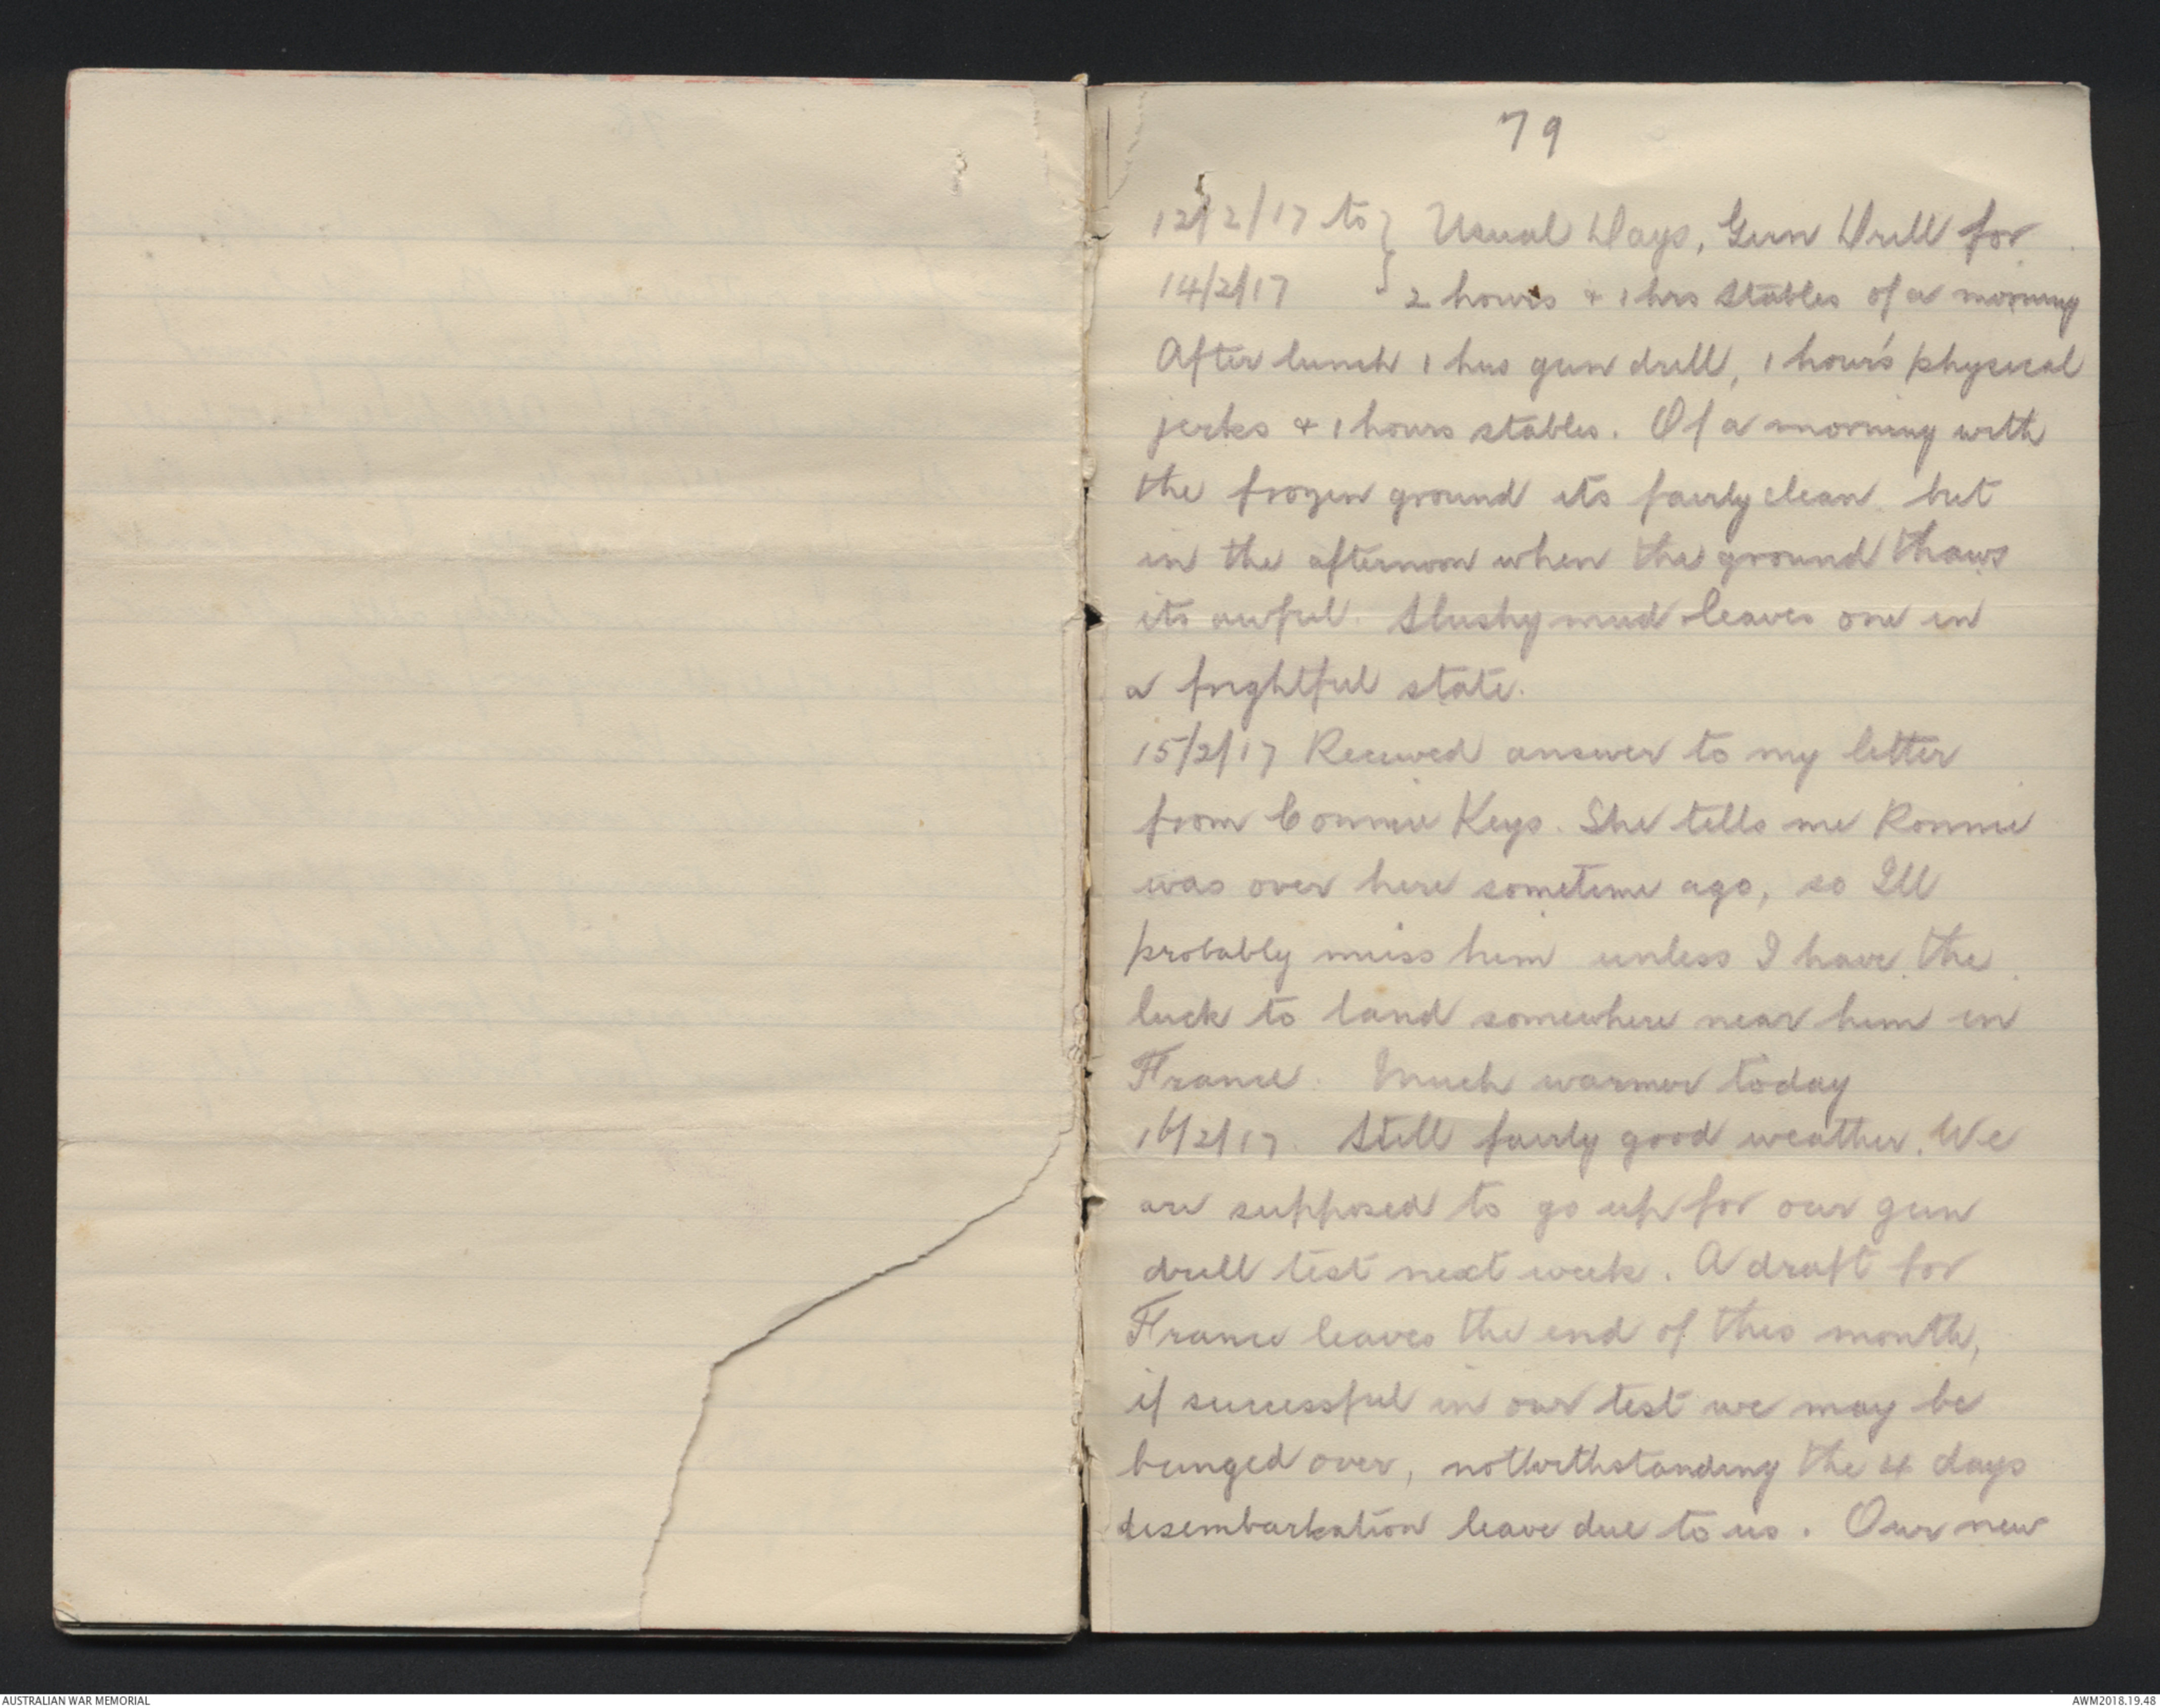 79
12/2/17 to } Usual Days, Gun Drill for
14/2/17 } 2 hours & 1 hrs Stables of a morning
After lunch 1 hrs gun drill, 1 hour's physical
jerks & 1 hours stables. Of a morning with
the frozen ground its fairly clean but
in the afternoon when the ground thaws
its awful. Slushy mud leaves one in
a frightful state.
15/2/17 Received answer to my letter
from Connie Keys. She tells me Ronnie
was over here sometime ago, so Ill
probably miss him unless I have the
luck to land somewhere near him in
France. Much warmer today
16/2/17. Still fairly good weather. We
are supposed to go up for our gun
drill test next week. A draft for
France leaves the end of this month,
if successful in our test we may be
bunged over, notwithstanding the 4 days
disembarkation leave due to us. Our new
AUSTRALIAN WAR MEMORIAL
AWM2018.19.48